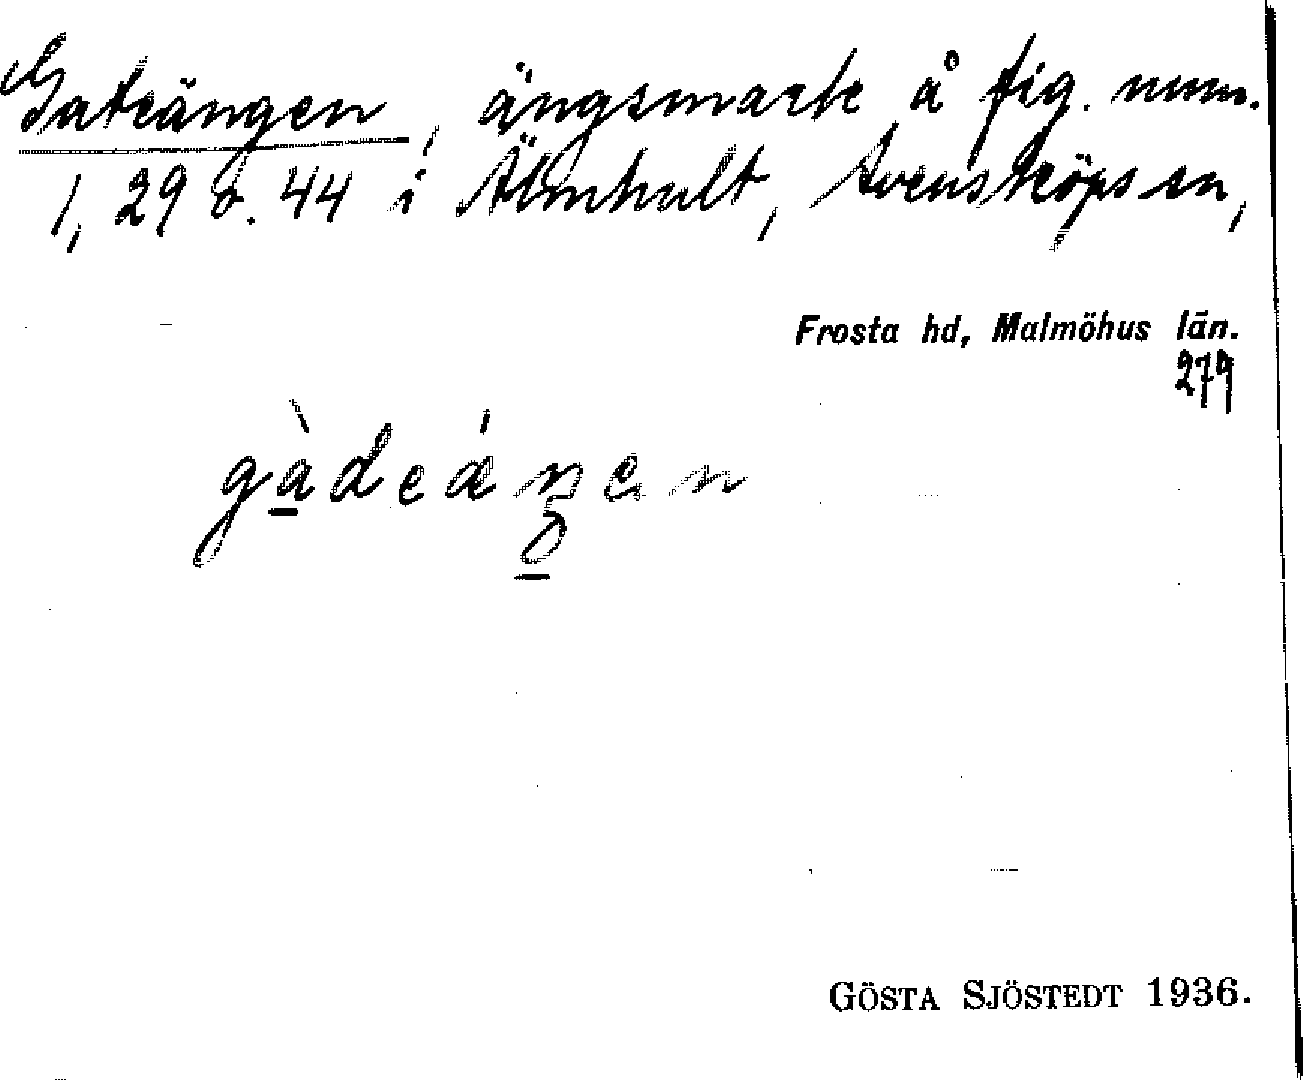 Gateängen, ängsmark å fig. num.
1, 29 o. 44 i Älmhult, Svensköps sn,
Frosta hd, Malmöhus län.
279
gàdeáŋen
GÖSTA SJÖSTEDT 1936.